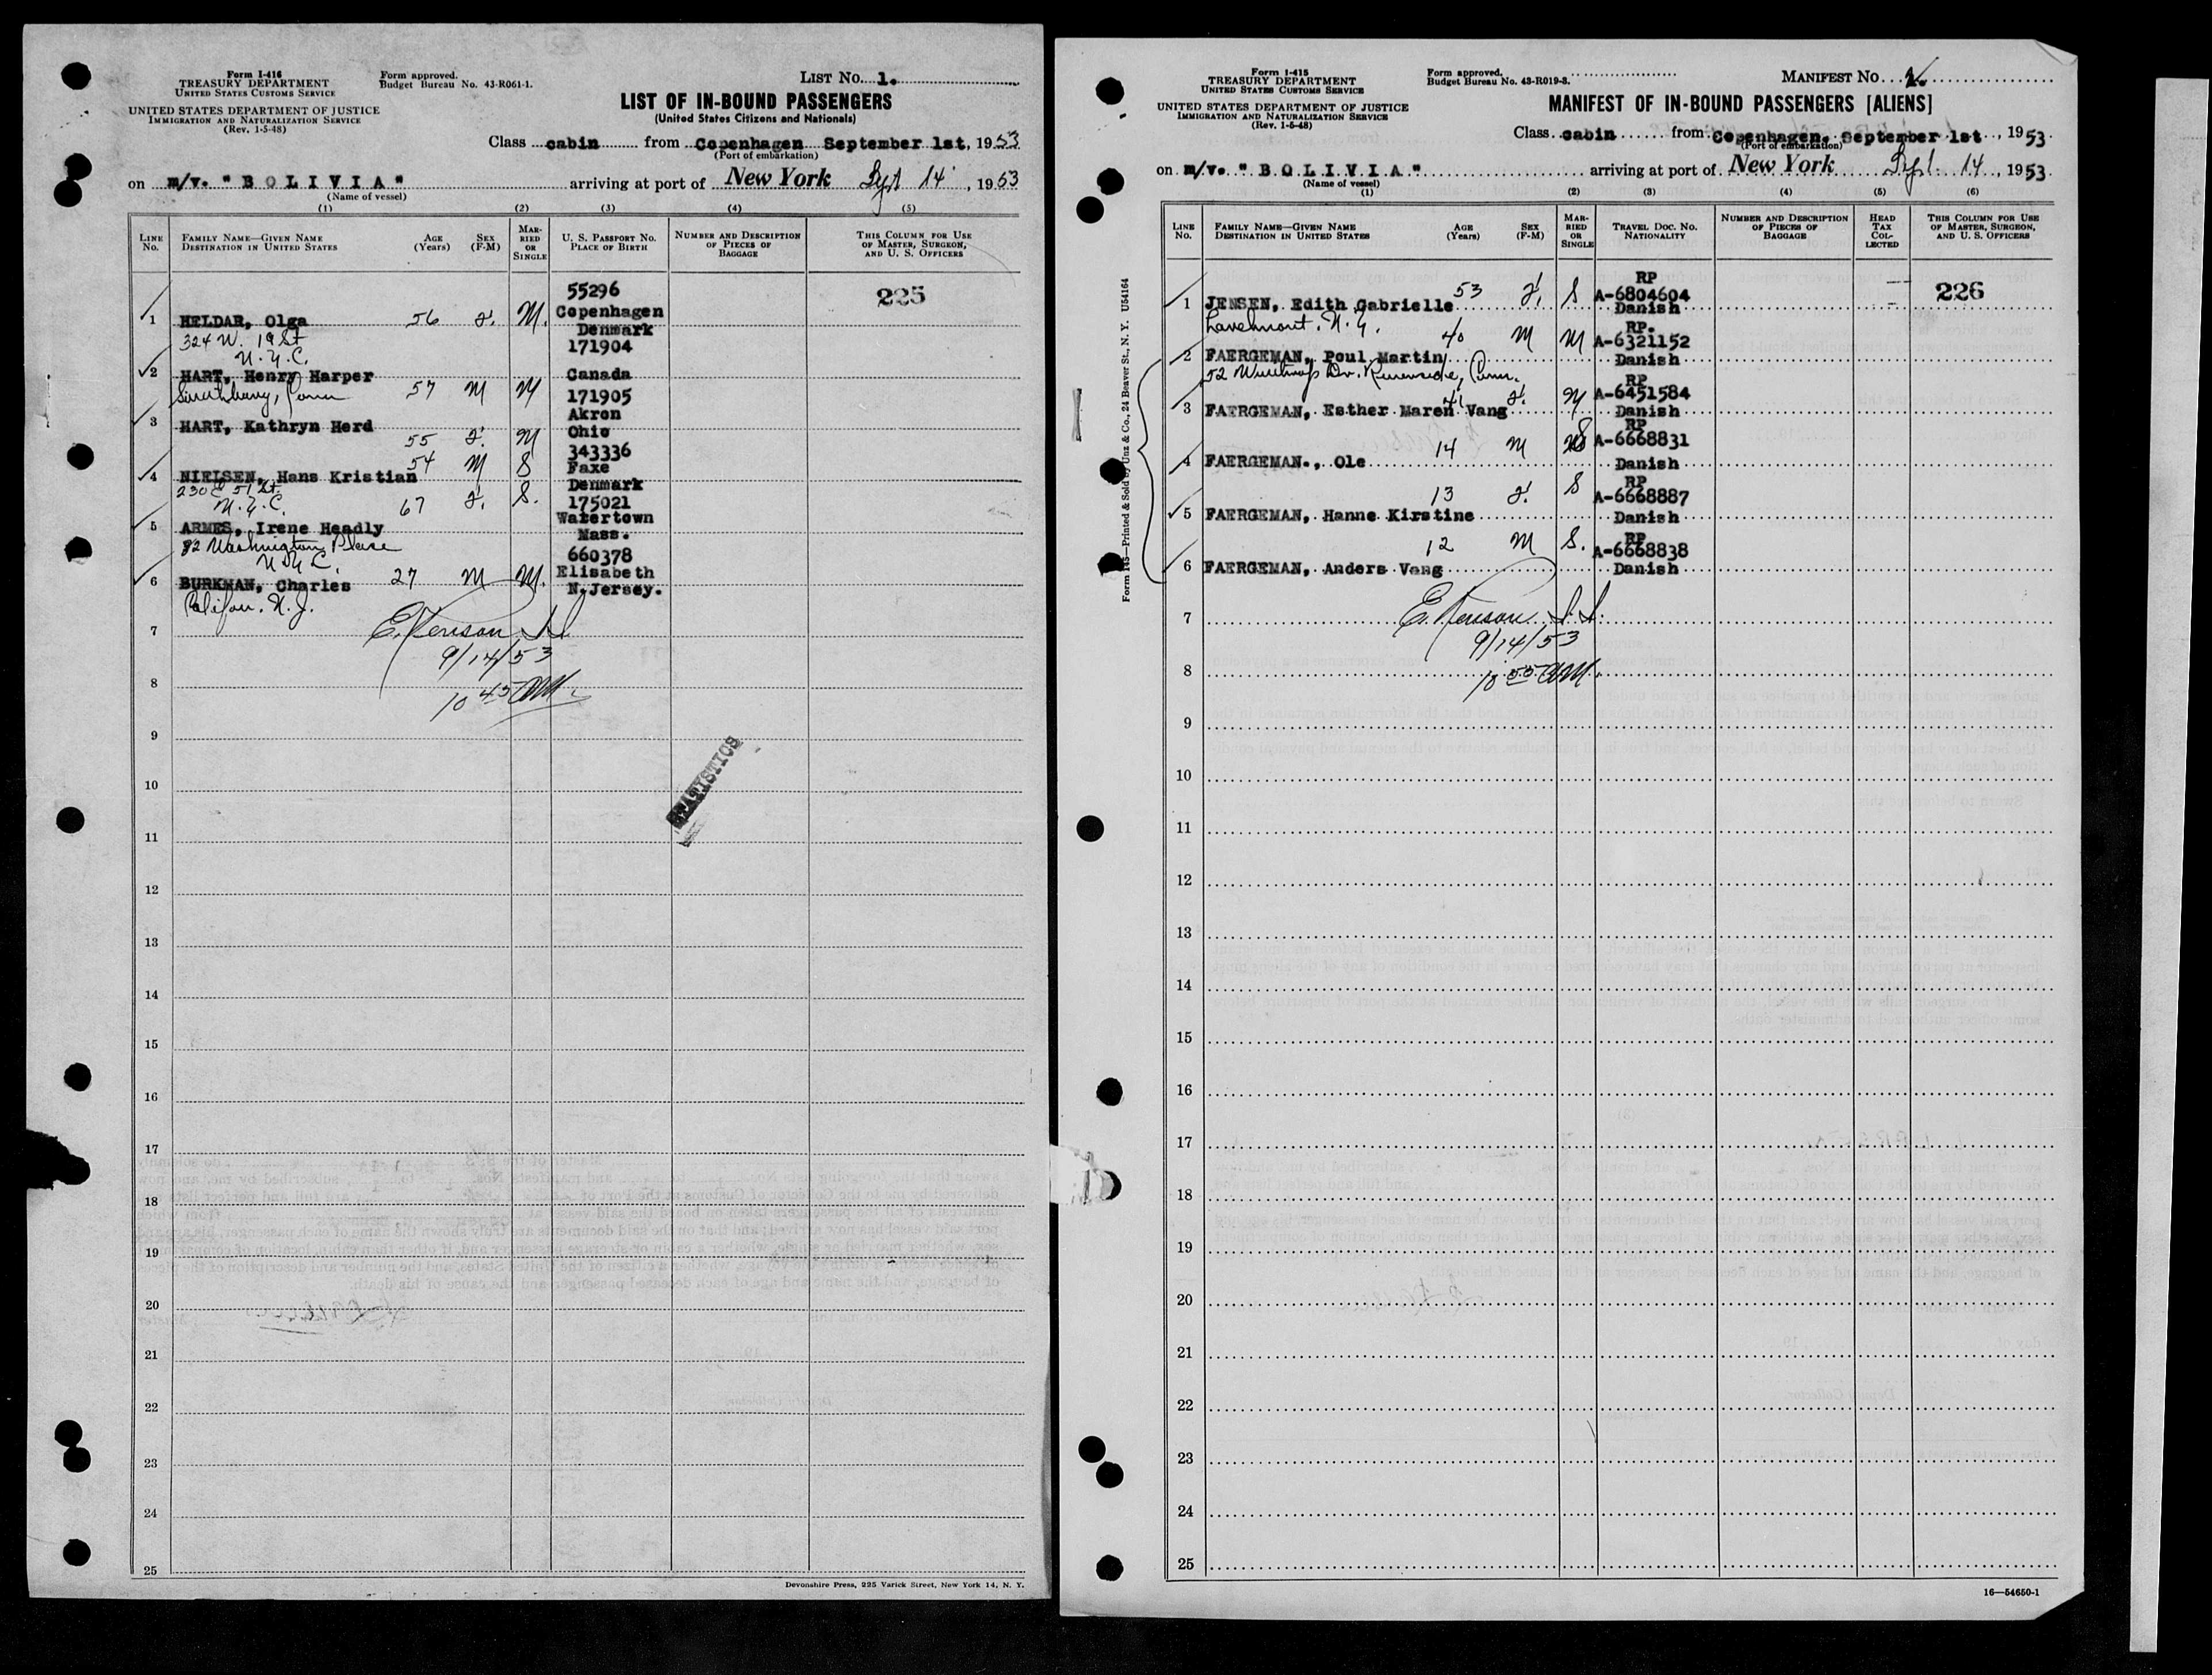 Form I-416
TREASURY DEPARTMENT
UNITED STATES CUSTOMS SERVICE
UNITED STATES DEPARTMENT OF JUSTICE
IMMIGRATION AND NATURALIZATION SERVICE
(Rev. 1-5-48)
Form approved.
Budget Bureau No. 43-R061-1.
LIST NO. 1.
LIST OF IN-BOUND PASSENGERS
(United States Citizens and Nationals)
Class cabin from Copenhagen September 1st, 1953
(Port of embarkation)
on m/v. "BOLIVIA" arriving at port of New York Sept 14, 1953
(Name of vessel)
(1) (2) (3) (4) (5)
LINE No. FAMILY NAME—GIVEN NAME DESTINATION IN UNITED STATES AGE (Years) SEX (F-M) MARRIED OR SINGLE U. S. PASSPORT NO. PLACE OF BIRTH NUMBER AND DESCRIPTION OF PIECES OF BAGGAGE THIS COLUMN FOR USE OF MASTER, SURGEON, AND U. S. OFFICERS
225
1 HELDAR, Olga 56 F. M. 55296 Copenhagen Denmark
324 W. 19 St
N.Y.C.
2 HART, Henry Harper 57 M M 171904 Canada
3 HART, Kathryn Herd 55 F. M 171905 Akron Ohio
4 NIELSEN, Hans Kristian 54 M S 343336 Faxe Denmark
230 E 51 St.
N.Y.C.
5 ARMES, Irene Headly 67 F. S. 175021 Watertown Mass.
82 Washington Place
N.Y.C.
6 BURKMAN, Charles 27 M M. 660378 Elisabeth N.Jersey.
Califon. N.J.
7
9/14/53
8
10 45 AM.
9
STATISTICS
10
11
12
13
14
15
16
17
18
19
20
21
22
23
24
25
Devonshire Press, 225 Varick Street, New York 14, N. Y.
Form I-415
TREASURY DEPARTMENT
UNITED STATES CUSTOMS SERVICE
UNITED STATES DEPARTMENT OF JUSTICE
IMMIGRATION AND NATURALIZATION SERVICE
(Rev. 1-5-48)
Form approved.
Budget Bureau No. 43-R019-3.
MANIFEST NO. 2.
MANIFEST OF IN-BOUND PASSENGERS [ALIENS]
Class cabin from Copenhagen. September 1st, 1953.
(Port of embarkation)
on m/v. "BOLIVIA" arriving at port of New York Sept. 14, 1953.
(Name of vessel)
(1) (2) (3) (4) (5) (6)
LINE No. FAMILY NAME—GIVEN NAME DESTINATION IN UNITED STATES AGE (Years) SEX (F-M) MARRIED OR SINGLE TRAVEL DOC. NO. NATIONALITY NUMBER AND DESCRIPTION OF PIECES OF BAGGAGE HEAD TAX COLLECTED THIS COLUMN FOR USE OF MASTER, SURGEON, AND U. S. OFFICERS
226
1 JENSEN, Edith Gabrielle 53 F. S RP A-6804604 Danish
2 FAERGEMAN, Poul Martin 40 M M RP. A-6321152 Danish
52 Winthrop Dr. Riverside, Conn.
3 FAERGEMAN, Esther Maren Vang 41 F. M RP A-6451584 Danish
4 FAERGEMAN., Ole 14 M S RP A-6668831 Danish
5 FAERGEMAN, Hanne Kirstine 13 F. S RP A-6668887 Danish
6 FAERGEMAN, Anders Vang 12 M S. RP A-6668838 Danish
7
9/14/53
8
10 55 AM.
9
10
11
12
13
14
15
16
17
18
19
20
21
22
23
24
25
Form 145—Printed & Sold by Unz & Co., 24 Beaver St., N. Y. U54164
16—54650-1